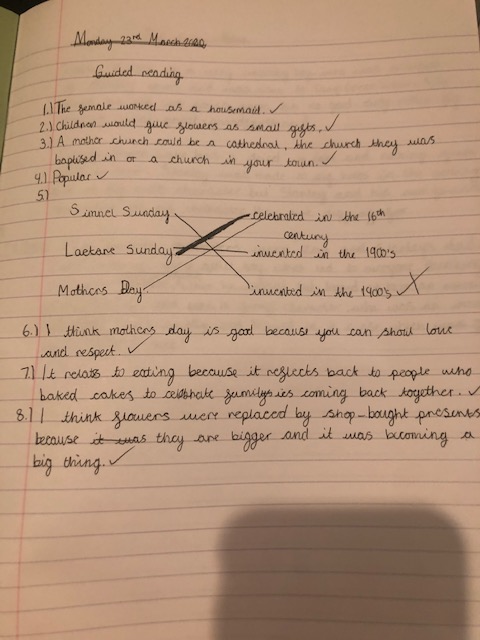 Monday 23rd March 2020
Guided reading
1.) The female worked as a housemaid. ✓
2.) Children would give flowers as small gifts. ✓
3.) A mother church could be a cathedral, the church they was
baptised in or a church in your town. ✓
4.) Popular ✓
5.)
Simnel Sunday
celebrated in the 16th
century
Laetare Sunday
invented in the 1900's
Mothers Day
invented in the 1400's
6.) I think mothers day is good because you can show love
and respect. ✓
7.) It relates to eating because it reflects back to people who
baked cakes to celebrate coming back together. ✓
8.) I think flowers were replaced by shop-bought presents
because it was they are bigger and it was becoming a
big thing. ✓